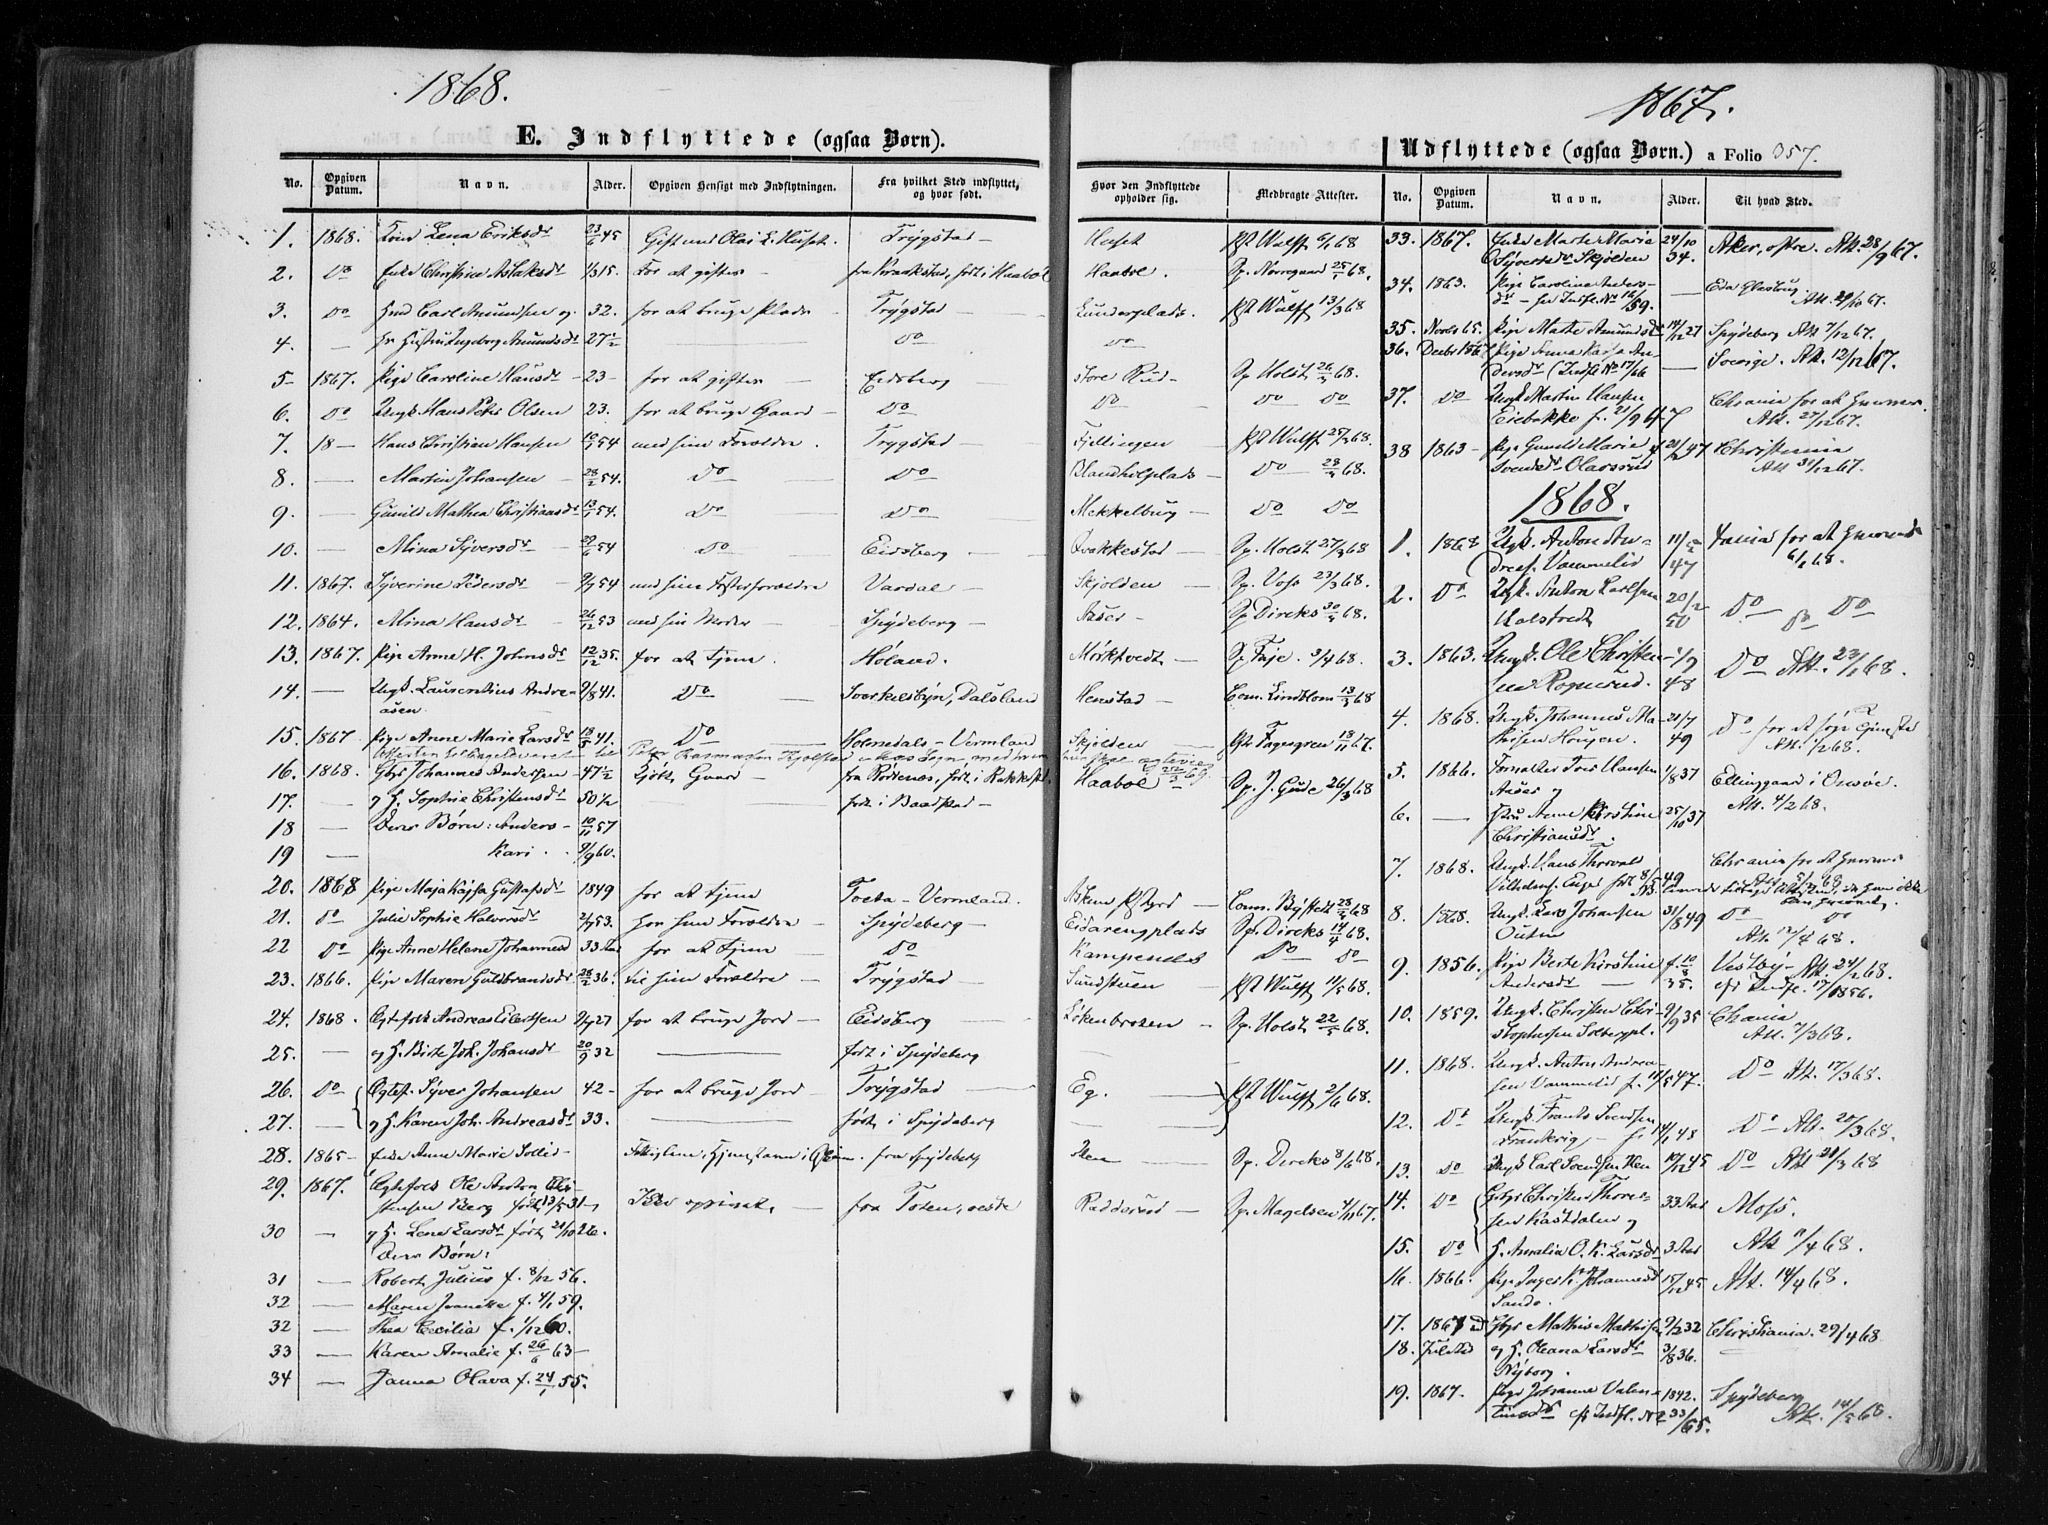 1868.
E. Indflyttede (ogsaa Børn).
No. Opgiven Datum. Navn. Alder. Opgiven Hensigt med Indflytningen. Fra hvilket Sted indflyttet, og hvor født. Hvor den Indflyttede opholder sig. Medbragte Attester.
1. 1868. Lena Eriksdr 23/6 45 Gift med Olai L. Huset Trygstad - Huset Pst Wulff 6/1 68
2. Do Enke Christine Aslaksdr 1/3 15. For at giftes - fra Kraakstad, født i Haabøl Haabøl. Sp. Norregaard 25/1 68.
3. Do Carl Amundsen og 32. for at bruge Plads Trygstad Lundereplads. Pst Wulff 13/3 68
4. - Hustru Ingeborg Amundsdr 27 1/2 - Do Do
5 - 1867. Pige Caroline Hansdr - 23 - for at giftes - Eidsberg store Rud - Sp. Holst 26/3 68.
6. Do Ungk. Hans Peter Olsen 23. for at bruge Gaard - Do Do Do Do
7. 18 - Hans Christian Hansen 54 med sine Forældre. Trygstad - Fjellingen Pst Wulff 25/3 68.
8. - Martin Johansen - 28/2 54. Do Do Do 28/3 68.
9. - Gunild Mathea Christiansdr 13/1 54. Do Do Mekkelburg - Do Do
10. - Mina Syversdr 54 Do Eidsberg - Krakkestad - Sp. Holst 27/3 68
11. 1867. Syverine Pedersdr 54 med sine Fosterforældre Vardal - Skjolden - Sp. Voss 23/3 68.
12. 1864. Mina Hansdr - 26/12 53 med sin Moder - Spydeberg - Aaser - Sp. Direks 30/3 68.
13. 1867. Pige Anne H. Johnsdr 12/12 35. for at tjene. Høland. Mørktvedt - Sp. Faye. 3/4 68.
14. - Ungk. Laurentius Andreasen 9/8 41. Do - Sverkelsbyn, Dalsland Henstad - Com. Lindblom 13/3 68
15. 1867. Pige Anne Marie Larsdr 41. Do - Holmedals - Vermland Skjolden - Pst Fagergren 18/11 67.
16. 1868. Gbr Johannes Andersen - 47 1/2 Kjøbt Gaard - fra Rødenæs, født i Rakkestad Haabøl Sp. J. Gude 26/3 68
17. - og H. Sophie Christensdr 50 1/2 født i Baastad -
18 - Deres Børn: Anders - 10/11 57
19 - Kari. 9/9 60.
20. 1868 Pige Maja Kajsa Gustafsdr 1849 for at tjene - Tveta - Vermland. Askim Pstgrd - Com. Bystedt 28/3 68
21. Do Julie Sophie Halvorsdr 53. hos sine Forældre - Spydeberg - Eidarengplads Sp. Direks 14/4 68.
22 Do Pige Anne Helene Johannesd 33 Aar for at tjene - Do Kampenæs Do Do
23. 1866. Pige Maren Guldbrandsdr 28/2 36. til sine Forældre - Trygstad - Sundstuen - Pst Wulff 11/5 68.
24. 1868. Egtefolk Andreas Eilertsen 27 for at bruge Jord - Eidsberg - Løkenbraaten - Sp. Holst 22/5 68.
25. - og H. Birte Joh. Johansdr 20/9 32 - født i Spydeberg
26. Do Egtef. Syver Johansen 42 - for at bruge Jord - Trygstad Eg. - Pst Wulff 2/6 68.
27. - og H. Karen Joh. Andreasdr 33. - født i Spydeberg -
28. 1865 - Enke Anne Marie Sollid - fra Spydeberg - Sp. Direks 8/6 68.
29. 1867. Egtefolk Ole Anton Olsen Berg født 13/5 31 - Ikke opgivet - fra Toten, vestre Radderud - Sp. Magelsen 4/11 67.
30 - og H. Lene Larsdr født 20/10 26.
Deres Børn:
31 - Robert Julius f. 8/12 56.
32 - Maren Jeanette f. 4/1 59.
32 - Thea Cecilia f. 1/12 60.
33 - Karen Amalie f. 26/6 63 -
34 - Janna Olava f. 24/1 55.
1867.
Udflyttede (ogsaa Børn.) a Folio 357.
No. Opgiven Datum. Navn. Alder. Til hvad Sted.
33. 1867. Enke Marte Marie Syversdr Skjolden 24/10 34. Aker, østre. Att. 28/9 67.
34. 1863. Pige Caroline Andersdr - se Indfl. No 16/59. - Eda Glasbrug Att. 29/10 67.
35. Novbr 65. Pige Marte Amundsdr 14/12 27 Spydeberg Att 7/12 67.
36. Decbr 1867 Pige Anna Kajsa Andersdr (Indfl. No 17/66 - Sverige. Att. 12/12 67.
37. Do Ungk. Martin Hansen Eiebakke f. 21/9 47 Chrania for at Att. 27/12 67.
38 1863 - Pige Gunild Marie Svendsdr Olavsrud 20/2 47 Christiania Att 31/12 67.
1868.
1. 1868 Ungk. Anton Andreas. Vammelid 11/5 47 for at 6/1 68.
2. Do Ungk. Anton Carlsen Holstvedt 20/2 50 Do Do
3. 1863. Ungk. Ole Christensen Rognerud. 1/9 48 Do Att. 23/1 68.
4. 1868. Ungk. Johannes Mathisen Hougen. 21/7 49 Do for at søge Tjeneste Att. 1/2 68.
5. 1866. Forpagter Iver Hansen Aaser og 1/8 37 Ellinggaard i Onsøe. Att. 4/2 68.
6. - Anne Kirstine Christiansdr. 25/10 37
7. 1868. Ungk. Hans Thorvald Vilhelmsen Enger født 8/5 49 Chrania for at 5/2 68
8. 1868. Ungk. Lars Johansen Outen 31/8 49 Do Do Att. 17/4 68.
9. 1856. Pige Berte Kirstine Andersdr - f. 10/8 35. Vestby - Att. 24/2 68. cfr Indfl. 17/1856.
10. 1859. Ungk. Christen Christophersen Solbergpl. 9/9 35 Chrania Att. 7/3 68.
11. 1868. Ungk. Anton Andreasen Vammelid f. 11/5 47. Do Att. 17/3 68.
12. Do Ungk. Frants Svendsen - f. 14/1 48 Do Att. 20/3 68.
13. Do Ungk. Carl Svendsen Hen 19/12 45 Do Att 21/3 68
14. Do Gbr Christen Thoresen Kastdalen og 33 Aar Moss.
15. Do H. Amalia O. K. Larsdr 3 Aar Att 11/4 68.
16. 1866. Pige Inger K. Johannesd Sande. 15/12 45 Att. 14/4 68.
17. 1867 Gbr Mathis Mathisen 9/12 32 Christiania. 29/4 68.
18. Juletid og H. Oleana Larsdr Nyborg. 3/8 36.
19. 1867. Pige Johanne Valentinsdr cfr Indfl. No 33/65. 1842. Spydeberg Att. 14/5 68.